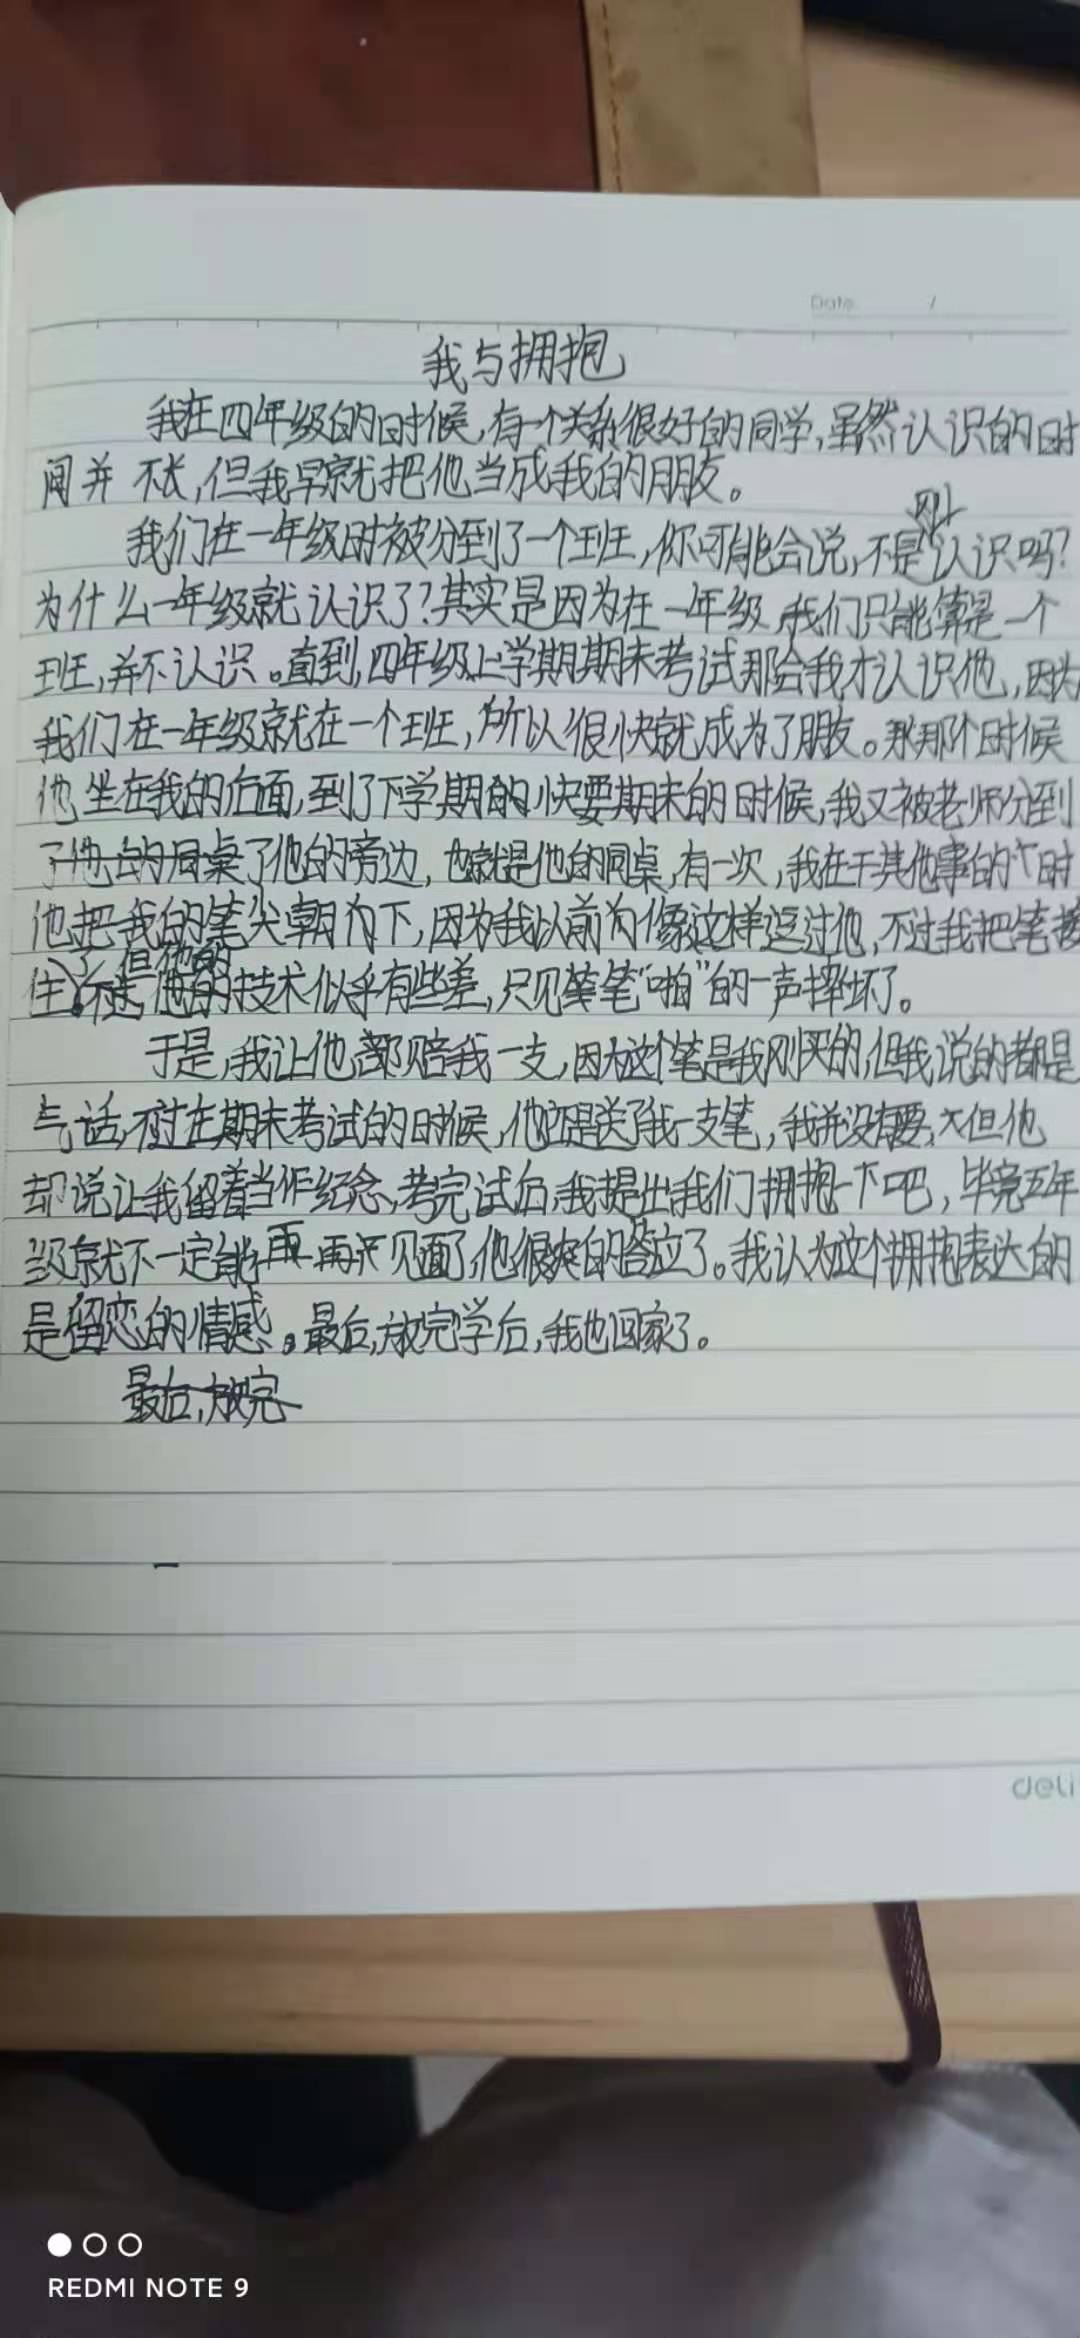 Date /
我与拥抱
我在四年级的时候,有一个关系很好的同学,虽然认识的时
间并不长,但我早就把他当成我的朋友。
我们在一年级时被分到了一个班,你可能会说,不是刚认识吗?
为什么一年级就认识了?其实是因为在一年级,我们只能算是一个
班,并不认识。直到,四年级上学期期末考试那会我才认识他,因为
我们在一年级就在一个班,所以很快就成为了朋友。那个时候
他坐在我的后面,到了下学期的快要期末的时候,我又被老师分到
了他的同桌了他的旁边,也就是他的同桌,有一次,我在干其他事的时
他把我的笔尖朝下,因为我以前像这样逗过他,不过我把笔接
住了,但他的技术似乎有些差,只见笔"啪"的一声摔坏了。
于是,我让他赔我一支,因为这个笔是我刚买的,但我说的都是
气话,不过在期末考试的时候,他还是送了我一支笔,我并没有要,但他
却说让我留着当作纪念,考完试后,我提出我们拥抱一下吧,毕竟五年
级就不一定能再见面了,他很爽的答应了。我认为这个拥抱表达的
是留恋的情感。最后,放完学后,我也回家了。
最后,放完
deli
REDMI NOTE 9